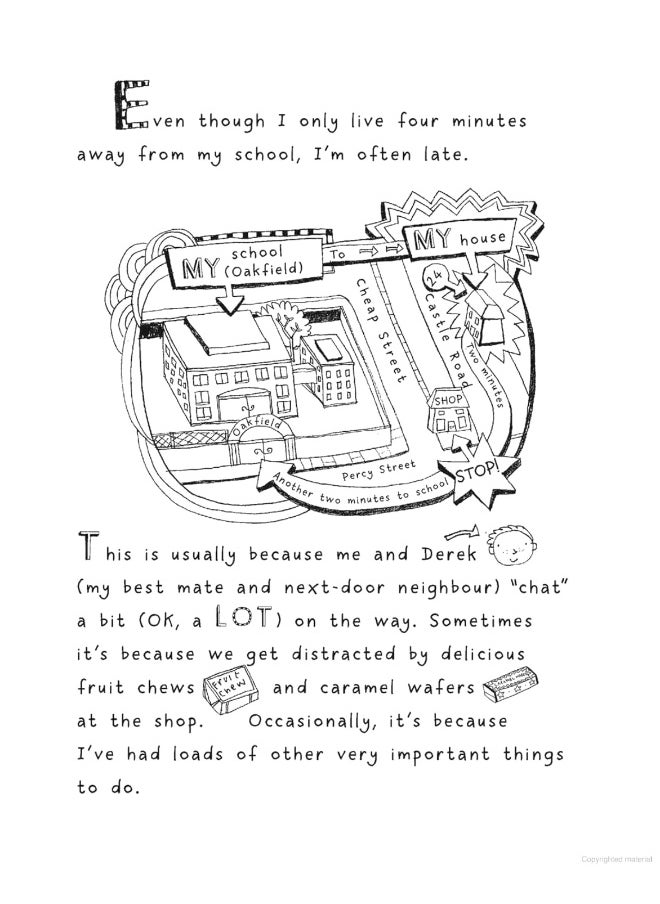 Even though I only live four minutes
away from my school, I'm often late.
MY school
(Oakfield)
To
MY house
24
Cheap Street
Castle Road
Two minutes
SHOP
Oakfield
Percy Street
STOP!
Another two minutes to school
This is usually because me and Derek
(my best mate and next-door neighbour) "chat"
a bit (OK, a LOT) on the way. Sometimes
it's because we get distracted by delicious
fruit chews
Fruit
Chew
and caramel wafers
at the shop. Occasionally, it's because
I've had loads of other very important things
to do.
Copyrighted material